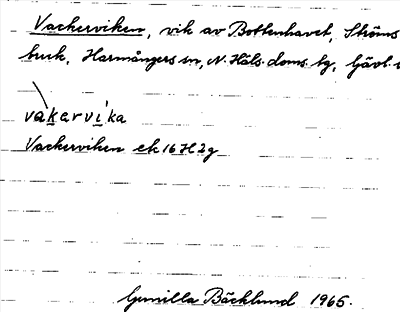 Vackerviken, vik av Bottenhavet, Ströms
bruk, Harmångers sn, N. Häls. doms. bg, Gävl.
vakervika
Vackerviken ek 16 H 2g
Gunilla Bäcklund 1965.